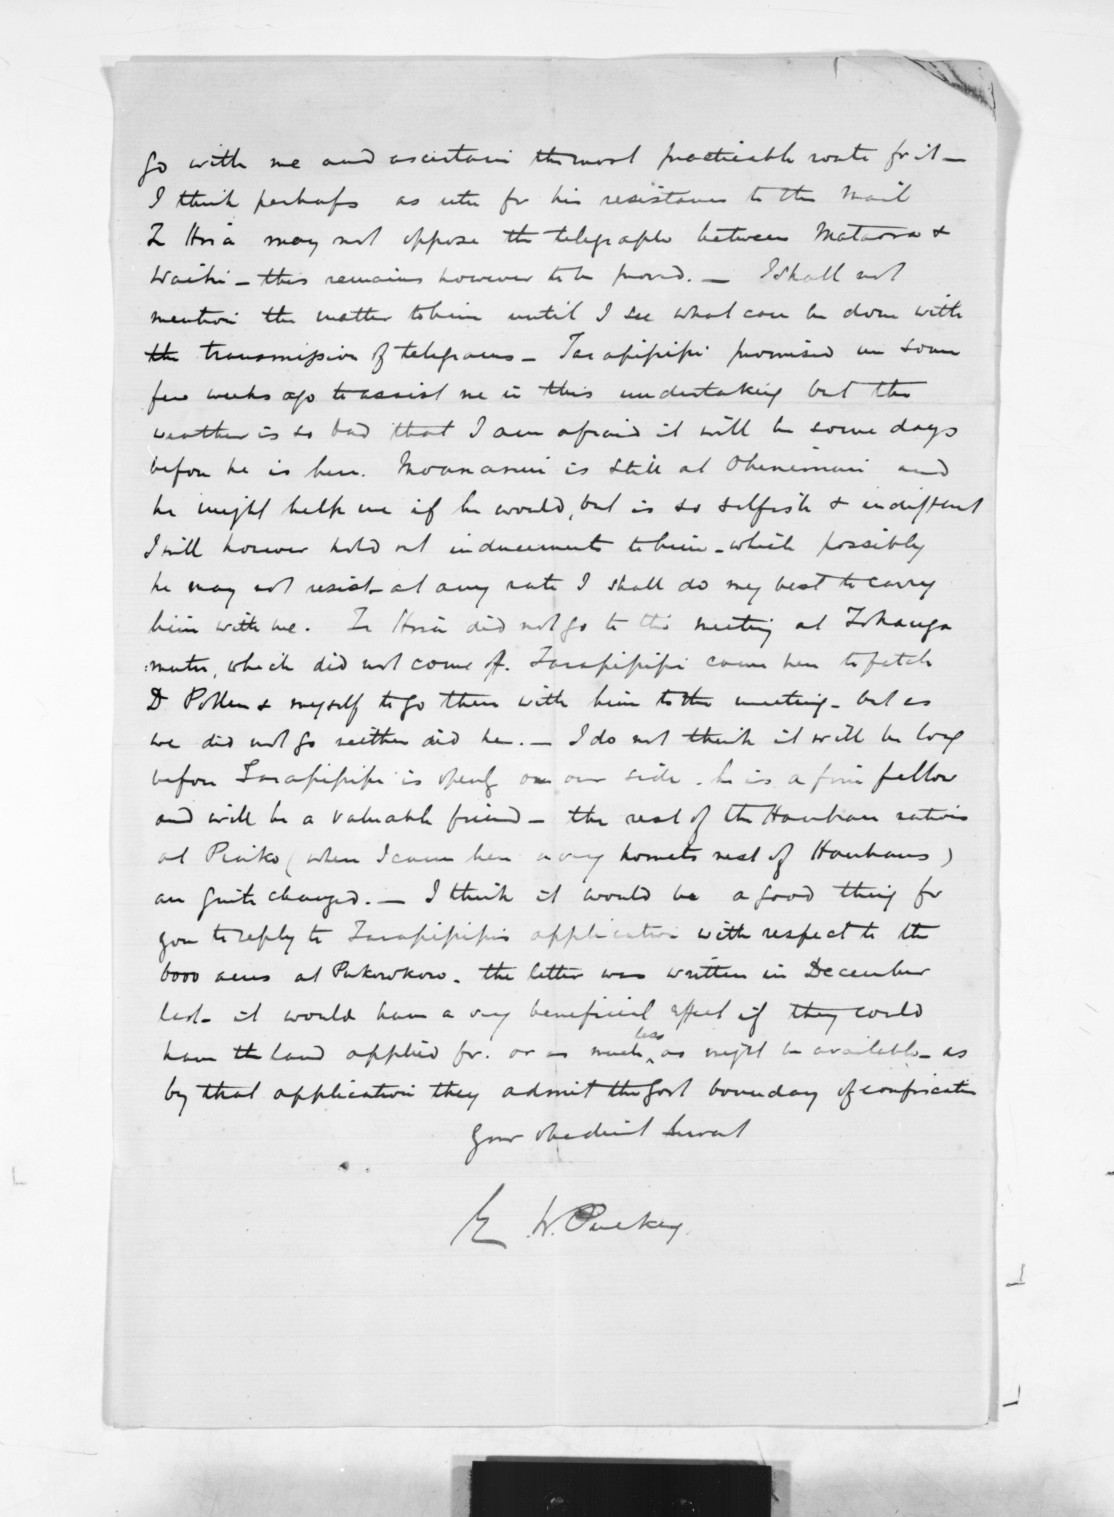 go with me and ascertain the most practicable route for it —
I think perhaps as utu for his resistance to the Mail
Te Hira may not oppose the telegraph between Mataora &
Waihi — this remains however to be proved. — I shall not
mention the matter to him until I see what can be done with
the transmission of telegrams — Tarapipipi promised me some
few weeks ago to assist me in this undertaking but the
weather is so bad that I am afraid it will be some days
before he is here. Moananui is still at Ohinemuri and
he might help me if he would, but is so selfish & indifferent
I will however hold out inducements to him - which possibly
he may not resist - at any rate I shall do my best to carry
him with me. Te Hira did not go to the meeting at Tokanga
mutu, which did not come off. Tarapipipi came here to fetch
Dr Pollen & myself to go there with him to the meeting - but as
we did not go neither did he. — I do not think it will be long
before Tarapipipi is openly on our side. he is a fine fellow
and will be a valuable friend — the rest of the Hauhau natives
at Piako (when I came here a very hornets nest of Hauhaus)
are quite changed. — I think it would be a good thing for
you to reply to Tarapipipi's application with respect to the
6000 acres at Pukorokoro. the letter was written in December
last - it would have a very beneficial effect if they could
have the land applied for. or as much less as might be available - as
by that application they admit the Govt boundary of confiscation
Your obedient Servant
E. W. Puckey.